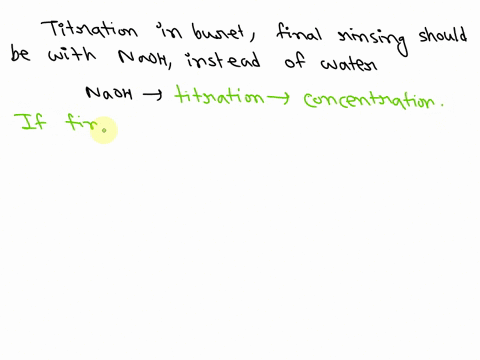 Titration in buret, final rinsing should
be with NaOH, instead of water
NaOH → titration → concentration.
If fin